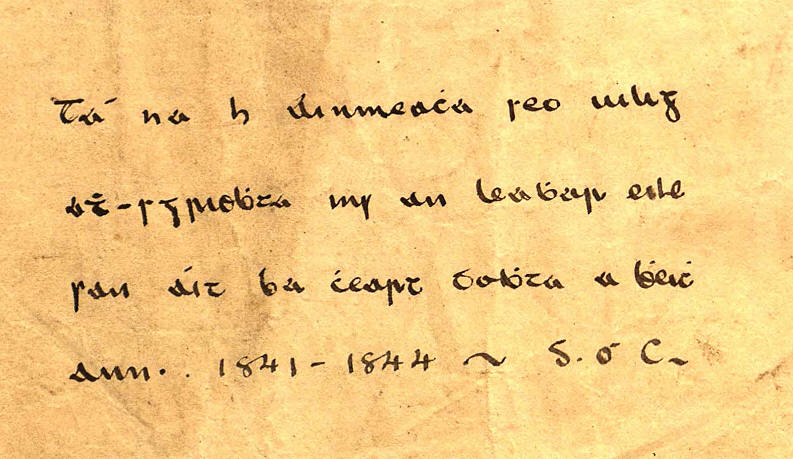 Tá na h ainmeaċa seo uilig
aṫ-sgrioḃta ins an leaḃar eile
san áit ba ċeart doḃta a ḃeiṫ
ann. . 1841-1844 ~ S. ó C.